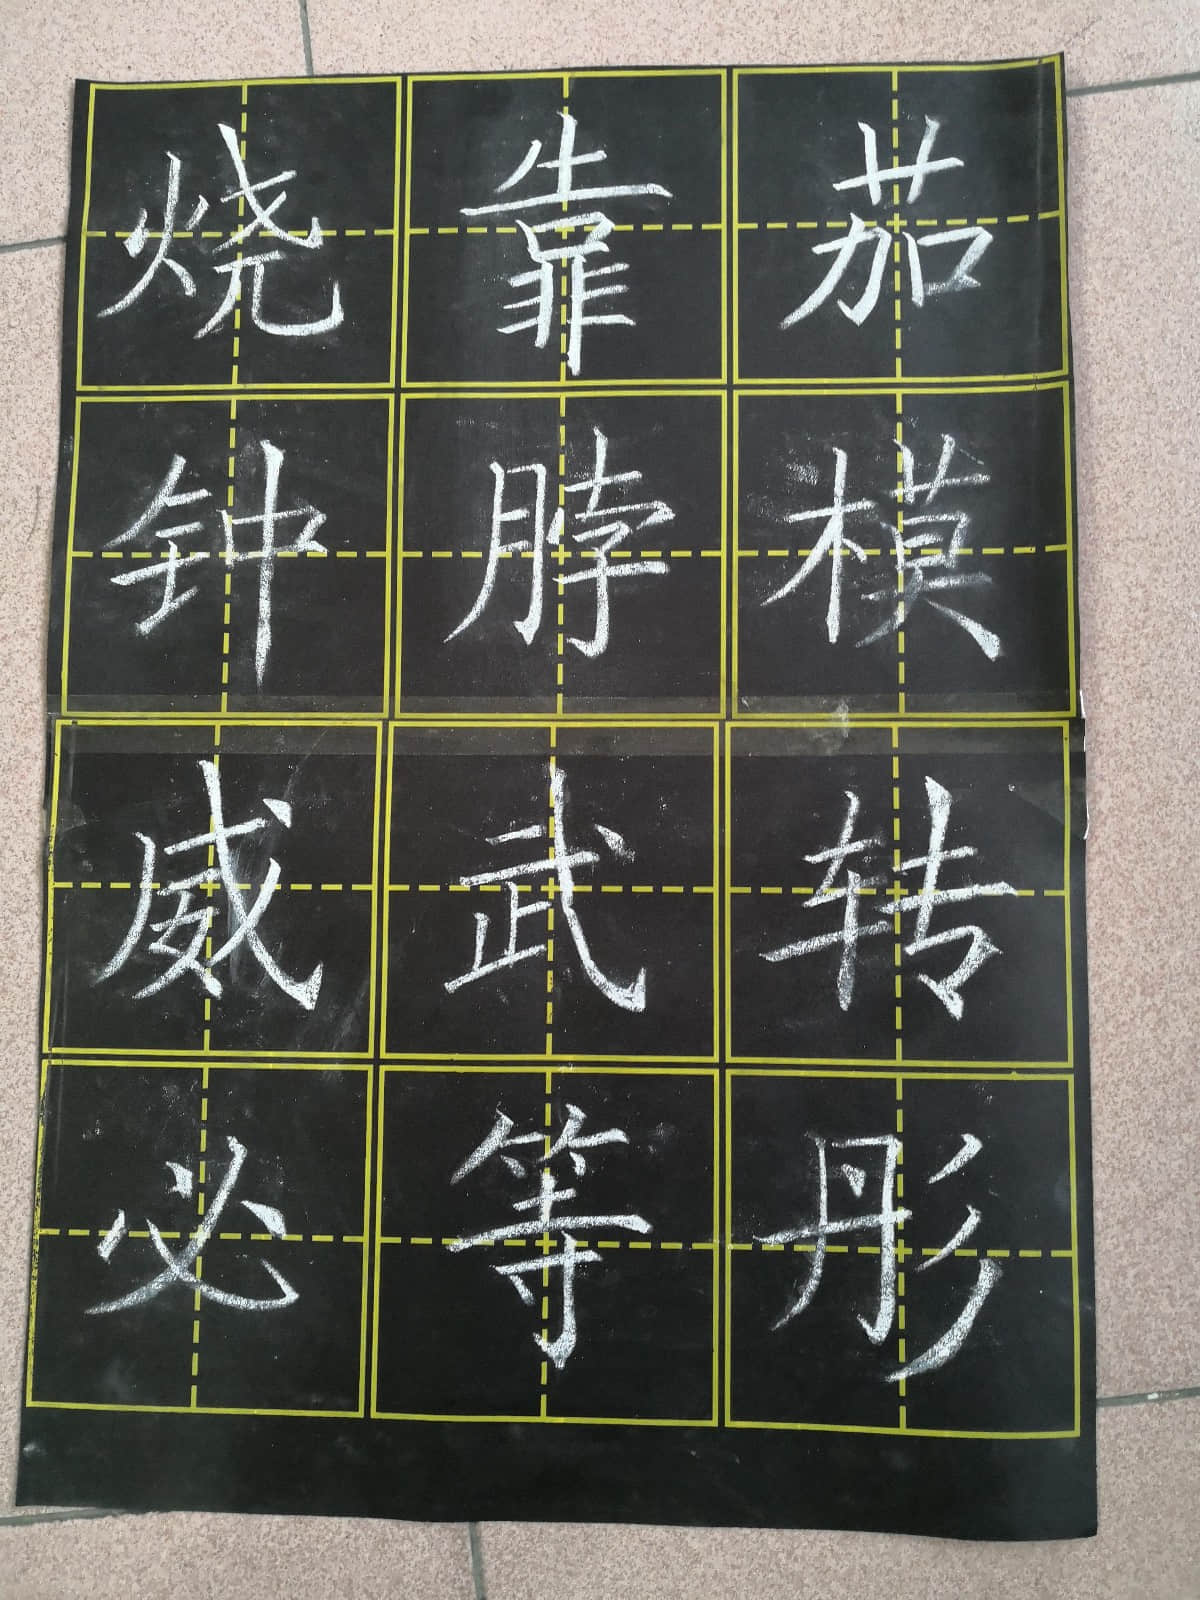 烧靠茄
钟脖模
威武转
必等彤